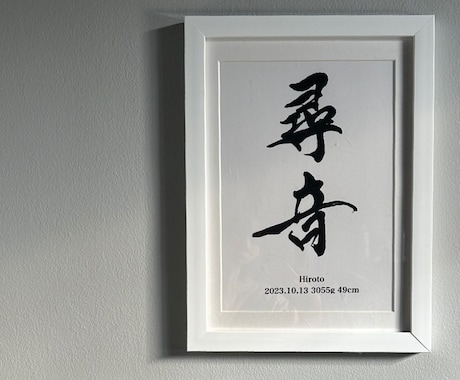 尋音
Hiroto
2023.10.13 3055g 49cm